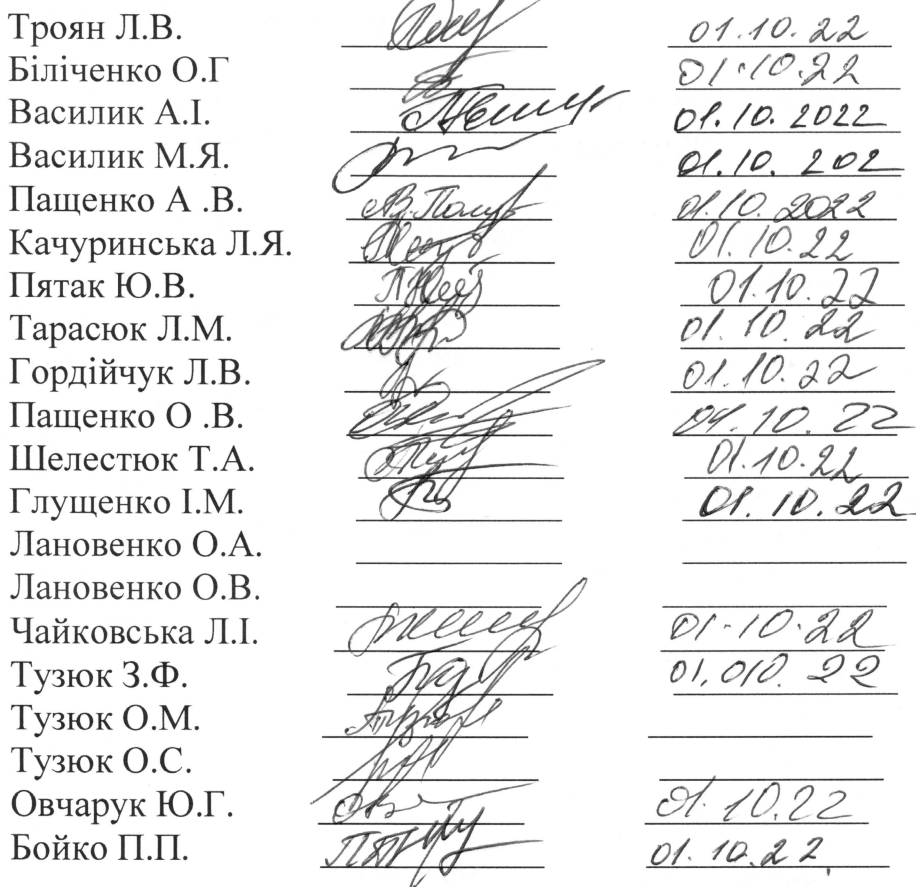 Троян Л.В. 01.10.22
Біліченко О.Г 01.10.22
Василик А.І. 01.10.2022
Василик М.Я. 01.10.202
Пащенко А .В. 01.10.2022
Качуринська Л.Я. 01.10.22
Пятак Ю.В. 01.10.22
Тарасюк Л.М. 01.10.22
Гордійчук Л.В. 01.10.22
Пащенко О .В. 01.10.22
Шелестюк Т.А. 01.10.22
Глущенко І.М. 01.10.22
Лановенко О.А.
Лановенко О.В.
Чайковська Л.І. 01.10.22
Тузюк З.Ф. 01.010.22
Тузюк О.М.
Тузюк О.С.
Овчарук Ю.Г. 01.10.22
Бойко П.П. 01.10.22